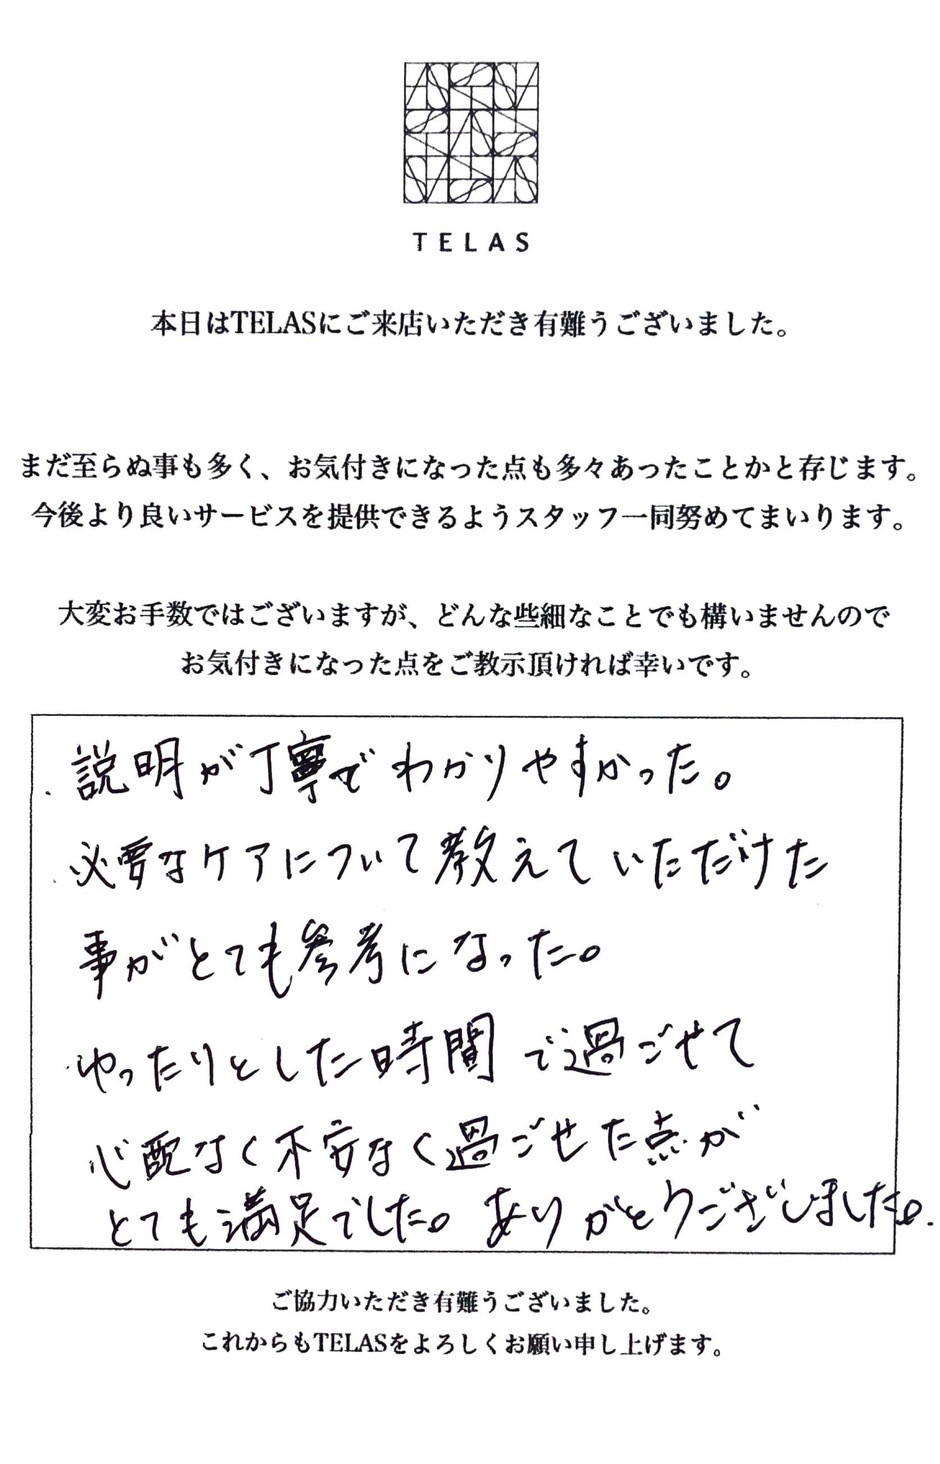 TELAS
本日はTELASにご来店いただき有難うございました。
まだ至らぬ事も多く、お気付きになった点も多々あったことかと存じます。
今後より良いサービスを提供できるようスタッフ一同努めてまいります。
大変お手数ではございますが、どんな些細なことでも構いませんので
お気付きになった点をご教示頂ければ幸いです。
説明が丁寧でわかりやすかった。
必要なケアについて教えていただけた
事がとても参考になった。
ゆったりとした時間で過ごせて
心配なく不安なく過ごせた点が
とても満足でした。ありがとうございました。
ご協力いただき有難うございました。
これからもTELASをよろしくお願い申し上げます。